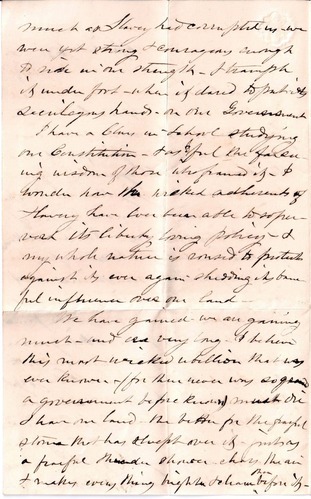 much as Slavery had corrupted us - we
were yet strong & courageous enough
to rise in our strength - & trample
it under foot - when it dared to put its
sacrilegious hand - on our Government
I have a Class in School studying
our Constitution - & as I feel the
wisdom of those who framed it - I
wonder how the wicked adherents of
Slavery have ever been able to so per-
vert its liberty loving policy - &
my whole nature is roused to protest
against its ever again shedding its bane-
ful influence over our land -
We have gained - we are gaining
much - and very long - I believe
this most wicked rebellion that was
ever known - (for there never was so good
a government before known) must die
& leave our land - the better for the fearful
storm that has swept over it - just as
a fearful thunder shower - clears the air
& makes every thing brighter & cleaner than before it -